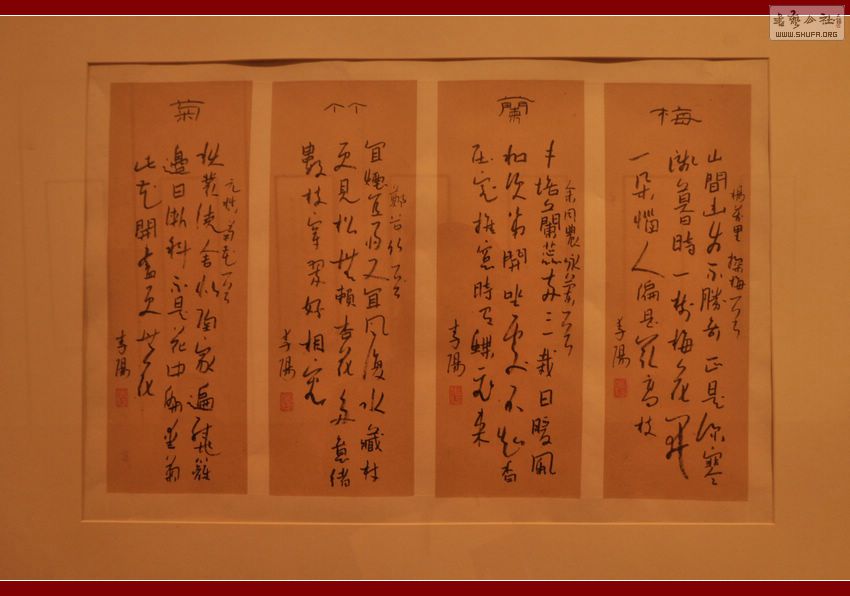 梅
楊萬里探梅一首
山間幽步不勝奇正是深寒
淺暮時一樹梅花開
一朵惱人偏是最高枝
李陽
蘭
余同麓詠蘭一首
手培蘭蕊兩三栽日暖風
和次第開坐久不知香
在室推窗時有蝶飛來
李陽
竹
鄭谷竹一首
宜煙宜雨又宜風拂水藏村
松無賴杏花多意緒
數枝穿翠好相容
李陽
菊
元稹菊花一首
秋叢繞舍似陶家遍繞籬
邊日漸斜不是花中偏愛菊
此花開盡更無花
李陽
書藝公社
WWW.SHUFA.ORG